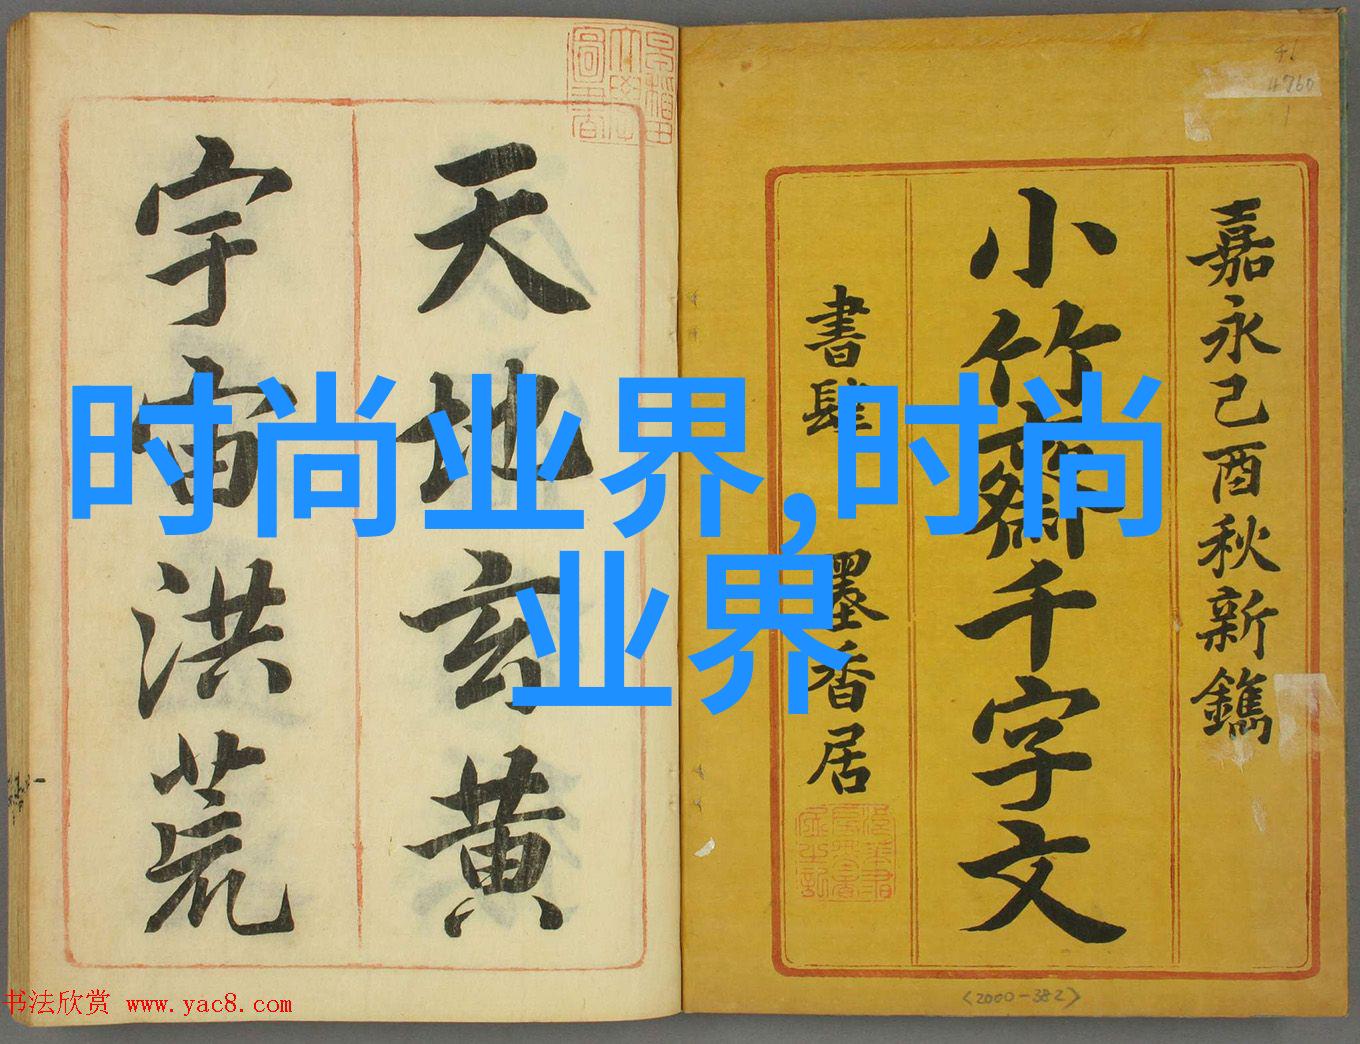 嘉永己酉秋新鐫
小竹齋千字文
書肆 墨香居
天地玄黄
宇宙洪荒
时尚业界,时尚
业界
4760
<2000-382>
书法欣赏 www.yac8.com